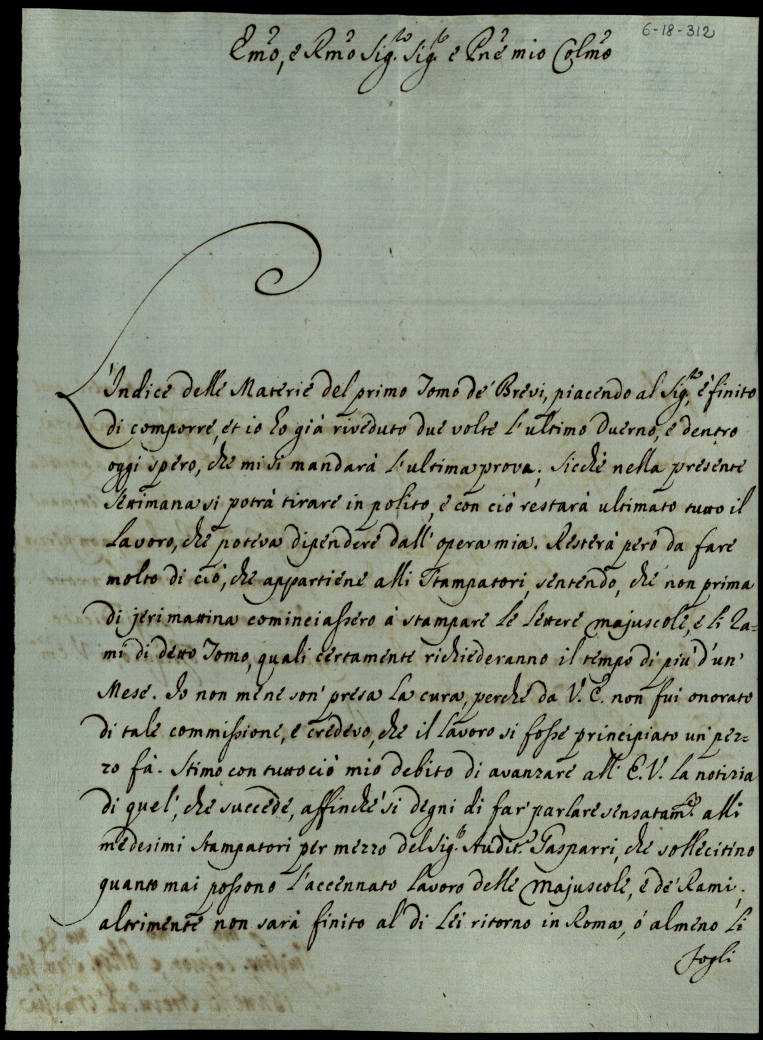 6-18-312
Em̃o, e Rm̃o Sig.r Sig.r e Pñe mio Colm̃o
L'Indice delle Materie del primo Tomo de' Brevi, piacendo al Sig.re è finito
di comporre, et io hò già riveduto due volte l'ultimo duerno, e dentro
oggi spero, che mi si mandarà l'ultima prova; sicchè nella presente
settimana si potrà tirare in polito, e con ciò restarà ultimato tutto il
lavoro, che poteva dipendere dall'opera mia. Resterà però da fare
molto di ciò, che appartiene alli Stampatori, sentendo, che non prima
di jerimattina cominciassero à stampare le lettere majuscole, e li Ra=
mi di detto Tomo, quali certamente richiederanno il tempo di più d'un'
Mese. Io non mene son' presa la cura, perchè da V. E. non fui onorato
di tale commissione, e credevo, che il lavoro si fosse principiato un' pez=
zo fà. Stimo con tuttociò mio debito di avanzare all' E.V. la notizia
di quel', che succede, affinchè si degni di far' parlare sensatam.e alli
medesimi Stampatori per mezzo del Sig.r Audit.e Gasparri, che sollecitino
quanto mai possono l'accennato lavoro delle Majuscole, e de' Rami;
altrimente non sarà finito al' di Lei ritorno in Roma, ò almeno li
fogli